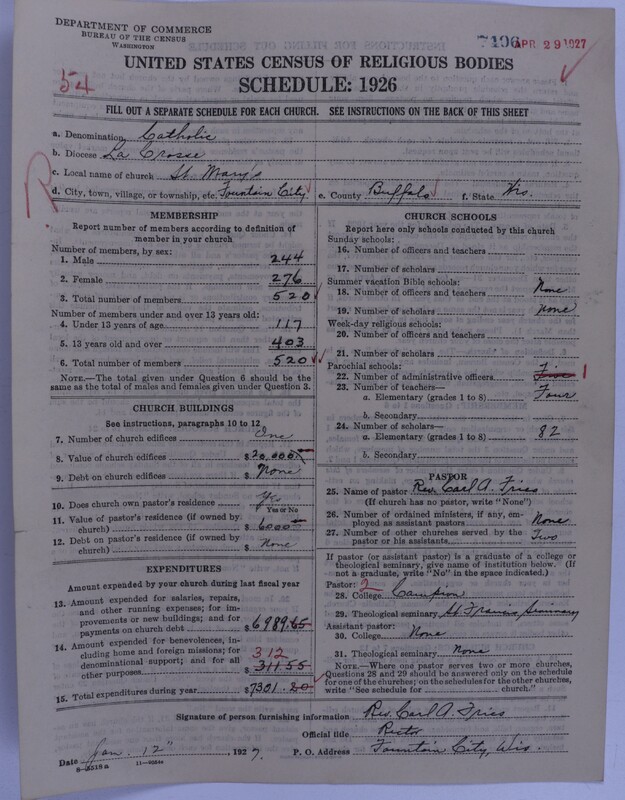 DEPARTMENT OF COMMERCE
BUREAU OF THE CENSUS
WASHINGTON
7196 APR 29 1927
UNITED STATES CENSUS OF RELIGIOUS BODIES
54
SCHEDULE: 1926
FILL OUT A SEPARATE SCHEDULE FOR EACH CHURCH. SEE INSTRUCTIONS ON THE BACK OF THIS SHEET
a. Denomination, Catholic
b. Diocese La Crosse
c. Local name of church St. Mary's
d. City, town, village, or township, etc. Fountain City e. County Buffalo f. State Wis.
MEMBERSHIP
Report number of members according to definition of
member in your church
Number of members, by sex:
1. Male 244
2. Female 276
3. Total number of members 520
Number of members under and over 13 years old:
4. Under 13 years of age 117
5. 13 years old and over 403
6. Total number of members 520
NOTE.—The total given under Question 6 should be
the same as the total of males and females given under Question 3.
CHURCH BUILDINGS
See instructions, paragraphs 10 to 12
7. Number of church edifices One
8. Value of church edifices $20,000.
9. Debt on church edifices $None
10. Does church own pastor's residence Yes
Yes or No
11. Value of pastor's residence (if owned by
church) $6000
12. Debt on pastor's residence (if owned by
church) $None
EXPENDITURES
Amount expended by your church during last fiscal year
13. Amount expended for salaries, repairs,
and other running expenses; for im-
provements or new buildings; and for
payments on church debt $6989.65
14. Amount expended for benevolences, 312
including home and foreign missions; for
denominational support; and for all
other purposes $311 55
15. Total expenditures during year $7301.20
CHURCH SCHOOLS
Report here only schools conducted by this church
Sunday schools:
16. Number of officers and teachers
17. Number of scholars
Summer vacation Bible schools:
18. Number of officers and teachers None
19. Number of scholars None
Week-day religious schools:
20. Number of officers and teachers
21. Number of scholars
Parochial schools:
22. Number of administrative officers Five 1
23. Number of teachers—
a. Elementary (grades 1 to 8) Four
b. Secondary
24. Number of scholars—
a. Elementary (grades 1 to 8) 82
b. Secondary
PASTOR
25. Name of pastor Rev. Carl A. Fries
(If church has no pastor, write "None")
26. Number of ordained ministers, if any, em-
ployed as assistant pastors None
27. Number of other churches served by the
pastor or his assistants Two
If pastor (or assistant pastor) is a graduate of a college or
theological seminary, give name of institution below. (If
not a graduate, write "No" in the space indicated.)
Pastor: 2
28. College Campion
29. Theological seminary St. Francis Seminary
Assistant pastor:
30. College None
31. Theological seminary None
NOTE.—Where one pastor serves two or more churches,
Questions 28 and 29 should be answered only on the schedule
for one of the churches; on the schedules for the other churches,
write "See schedule for church."
Signature of person furnishing information Rev. Carl A. Fries
Official title Rector
Date Jan. 12" 1927. P. O. Address Fountain City, Wis.
8—5518a 11—9034a